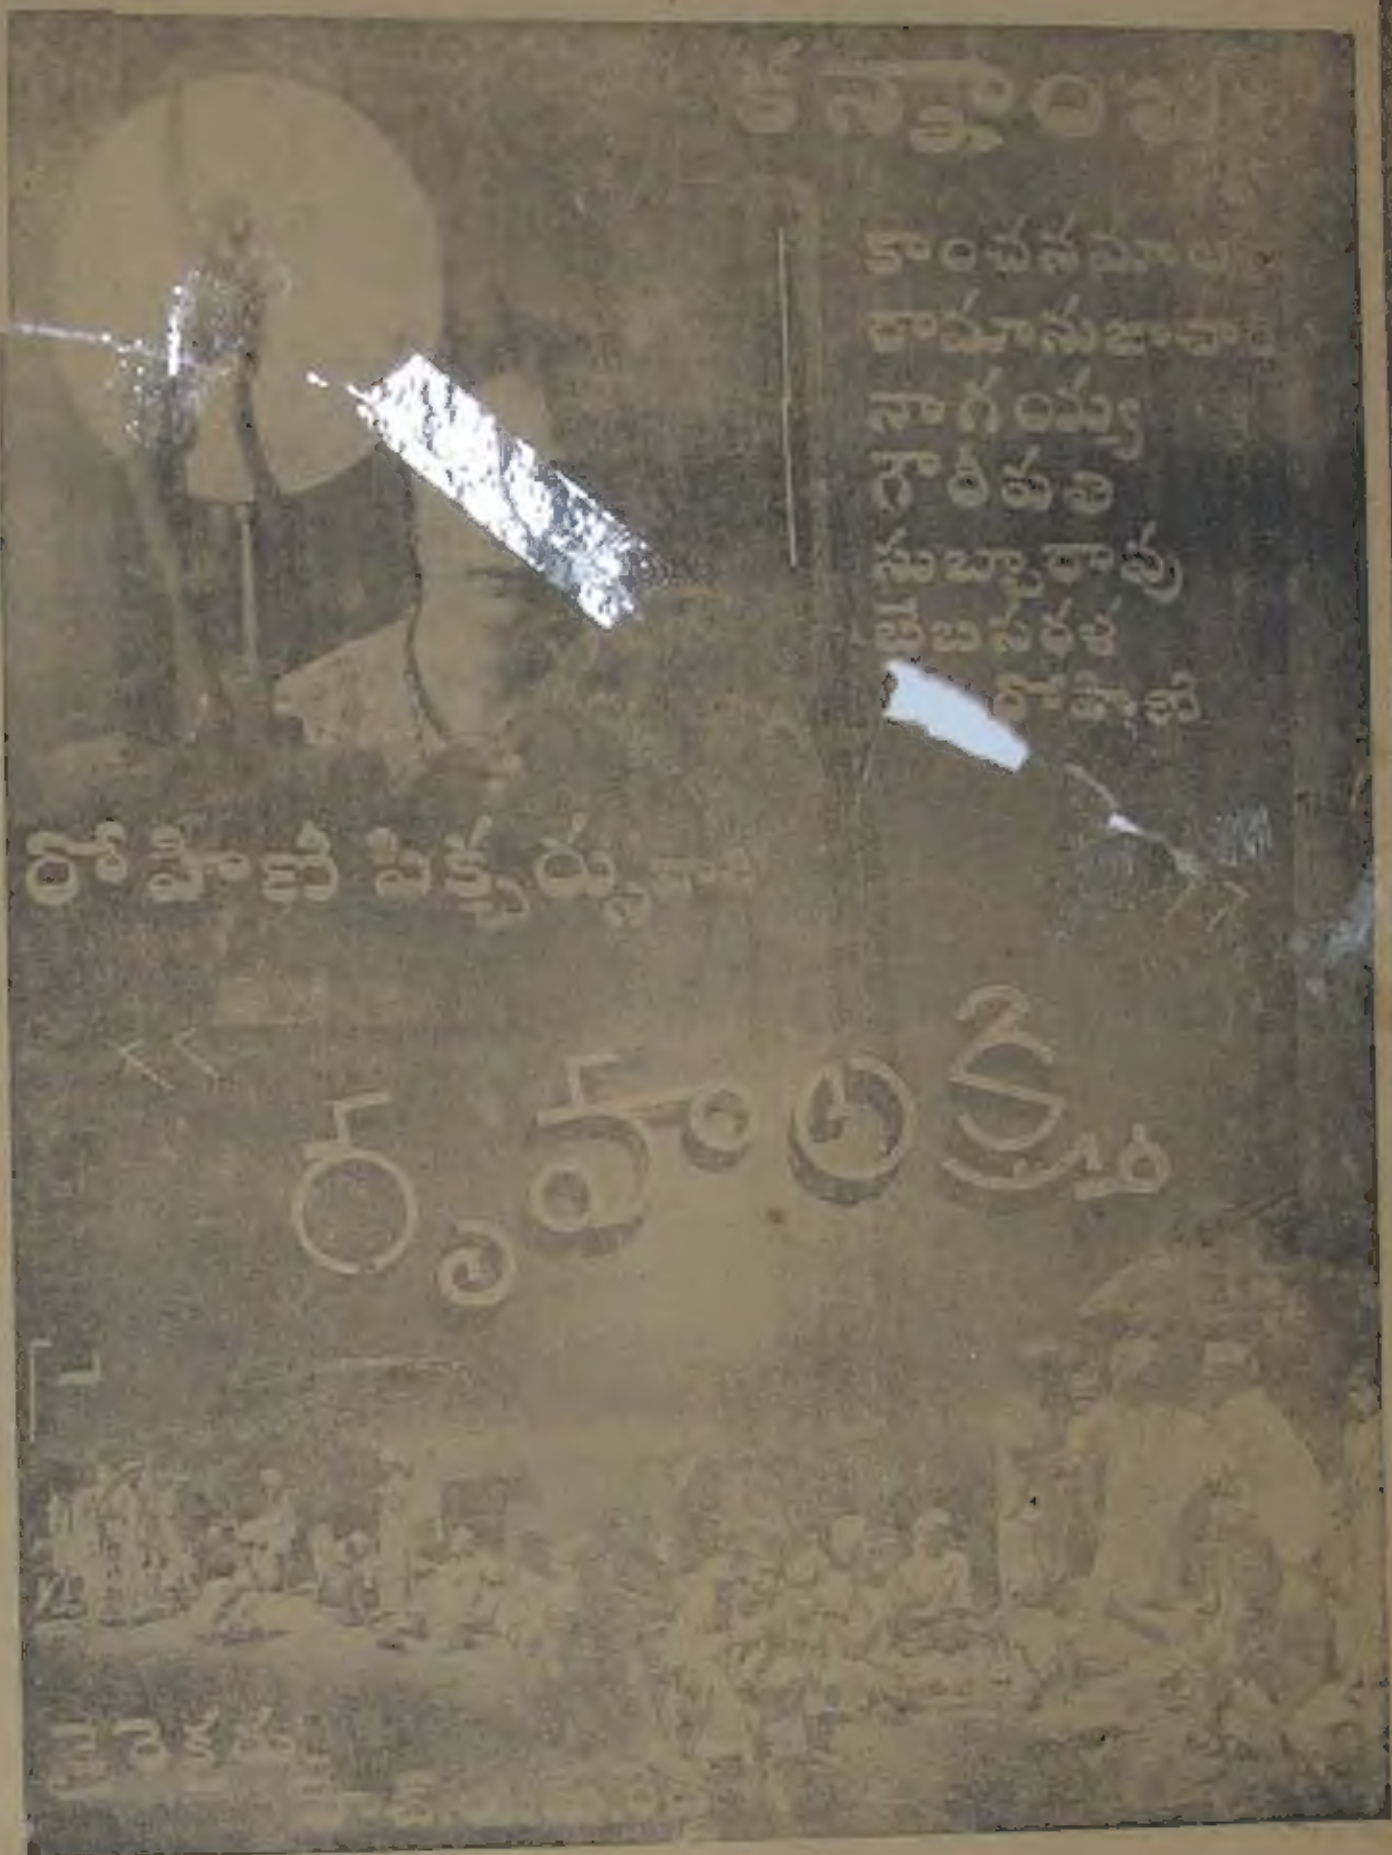 కన్నాంబ
కాంచనమాల
రామానుజాచారి
నాగయ్య
గౌరీపతి
సుబ్బారావు
బేబిసరళ
రోహిణి
రోహిణి పిక్చర్సు వారి
గృహలక్ష్మి